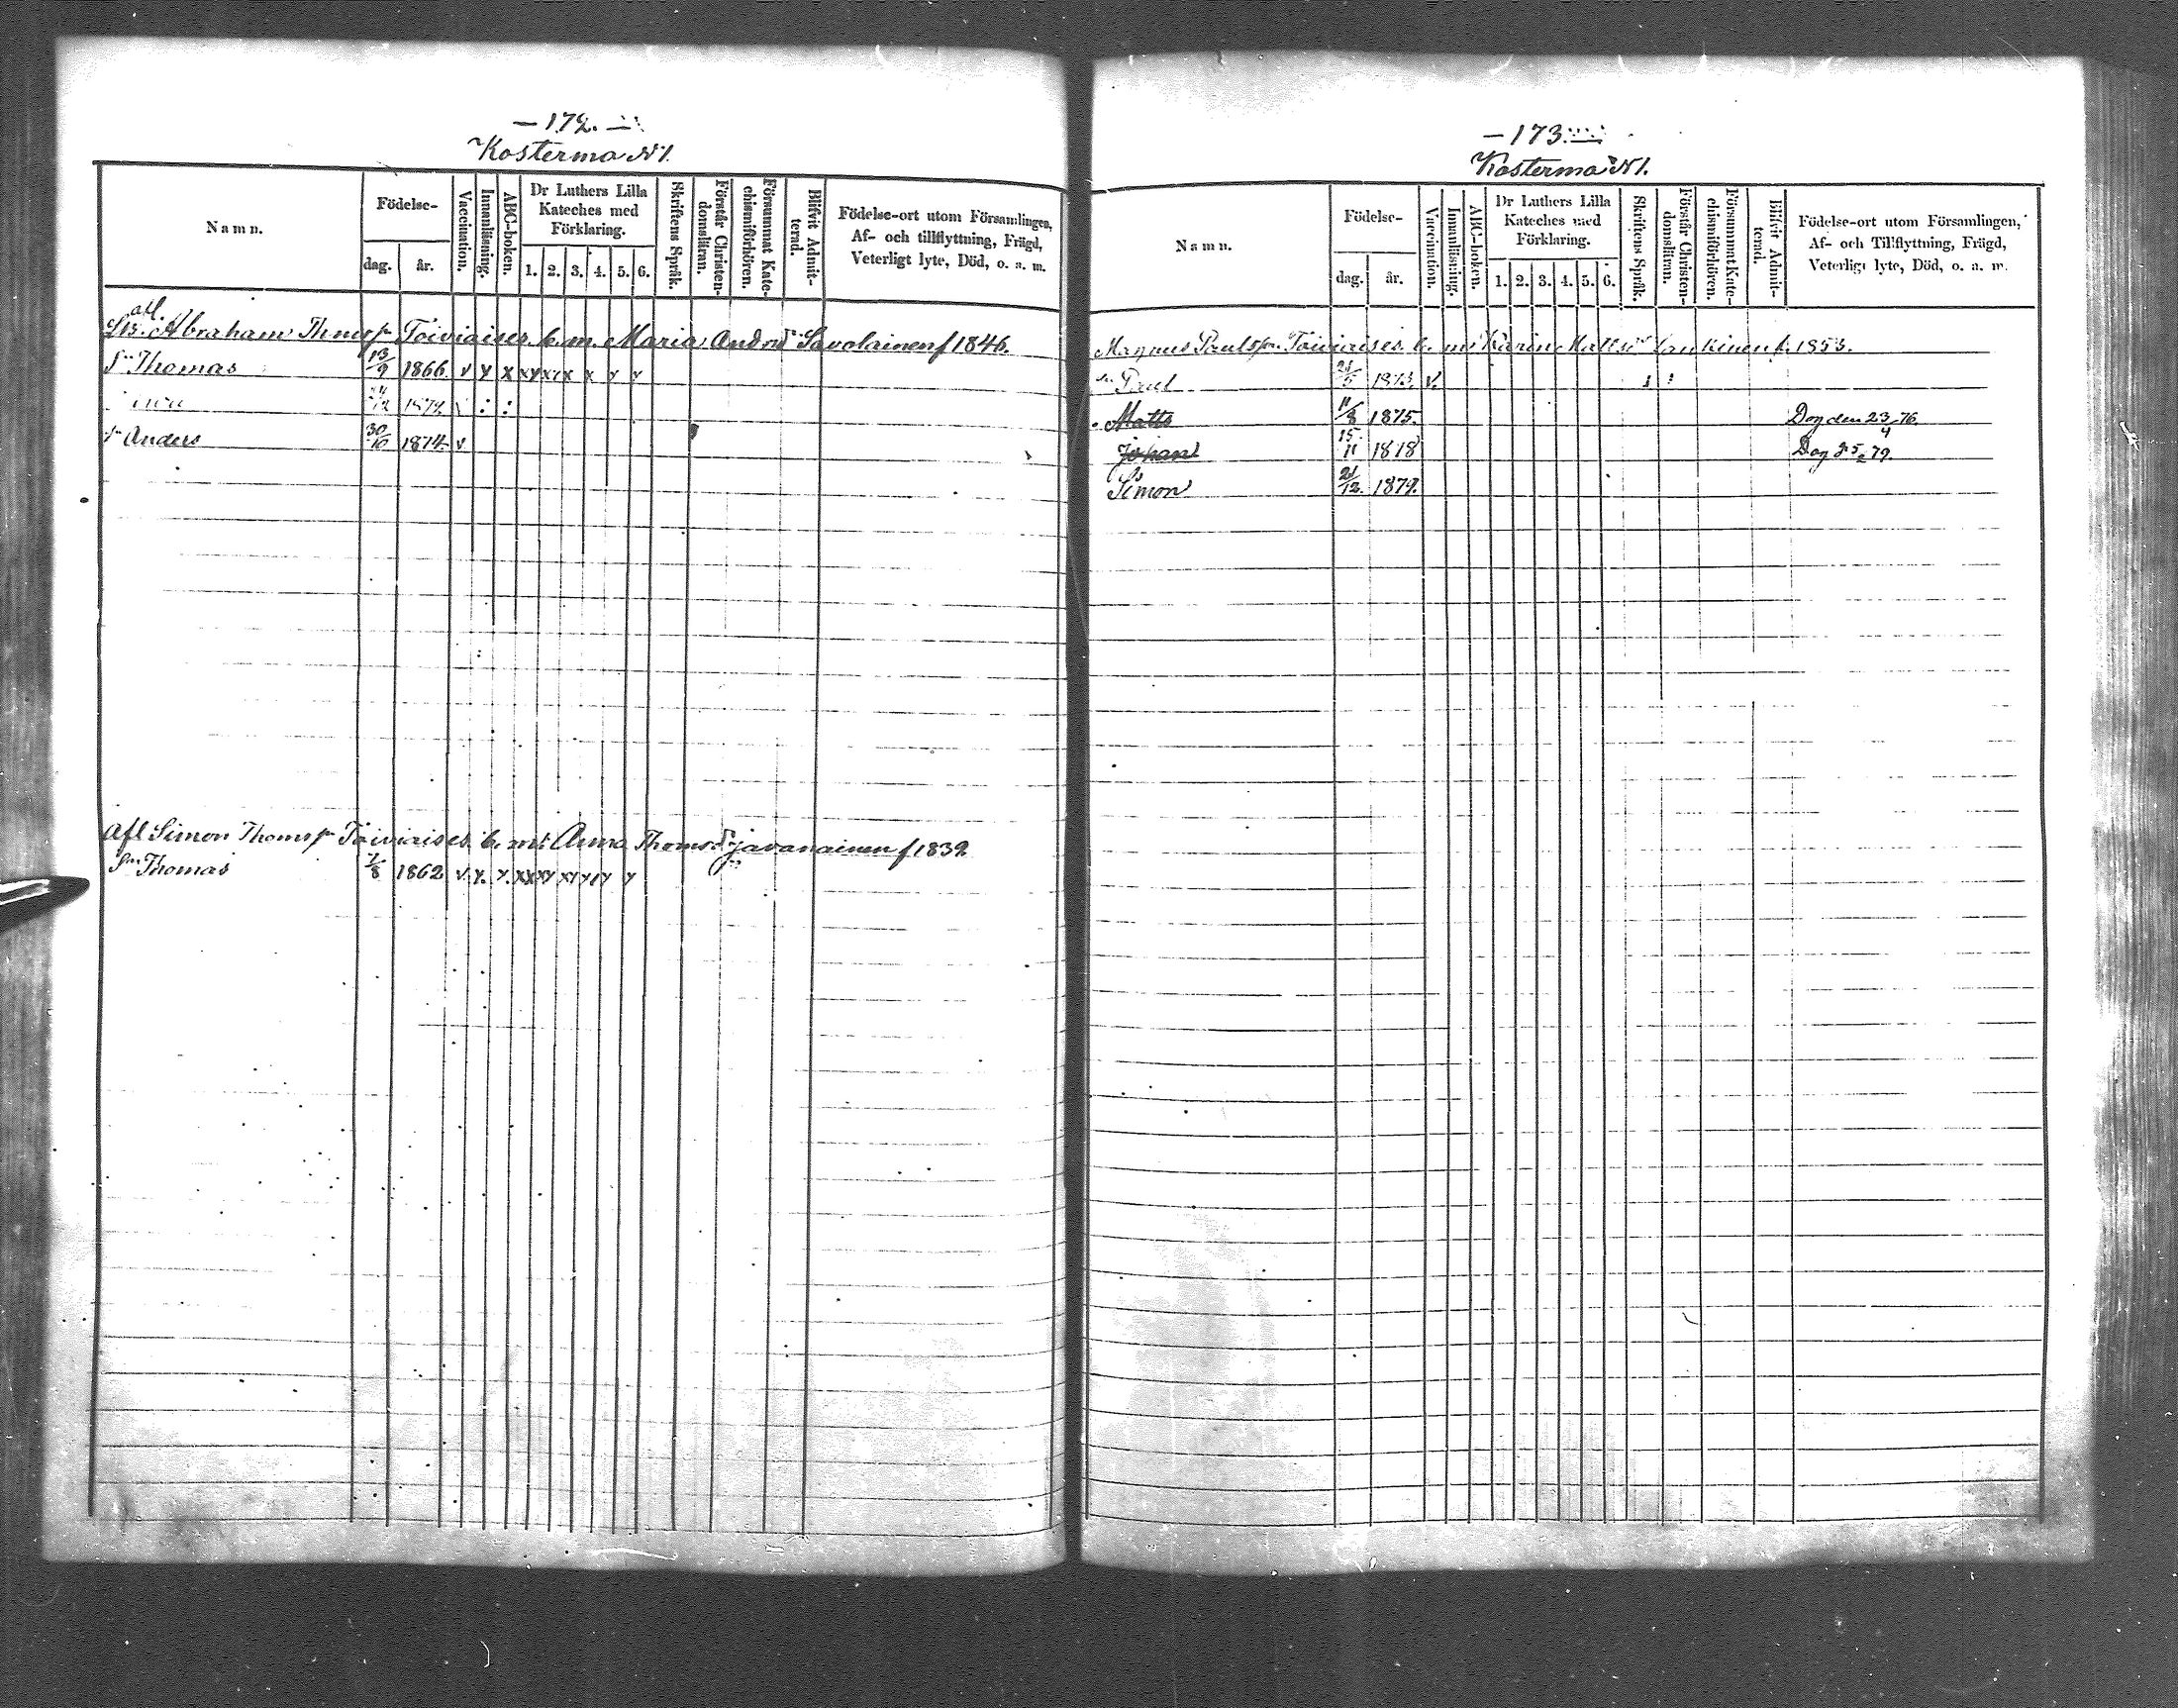 — 172. —
Kosterma N 1.
Namn.
Födelse-
dag.
år.
Vaccination.
Innanläsning.
ABC-boken.
Dr Luthers Lilla
Kateches med
Förklaring.
1. 2. 3. 4. 5. 6.
Skriftens Språk.
Förstår Christen-
domsläran.
Försummat Kate-
chismiförhören.
Blifvit Admit-
terad.
Födelse-ort utom Församlingen,
Af- och tillflyttning, Frägd,
Veterligt lyte, Död, o. a. m.
afl.
Abraham Thmsn Toiviaises b. m. Maria Andrsdr Savolainen f 1846.
Sn Thomas 13/9 1866 v y x xy xx x x y v
1872
Sn Anders 30/10 1874 v
Afl Simon Thomsn Toiviaises b. mt Anna Thomsdr Javanainen f 1839
Sn Thomas 7/8 1862 v y. y. xx xy xy y y y
— 173. —
Kosterma N 1.
Namn.
Födelse-
dag.
år.
Vaccination.
Innanläsning.
ABC-boken.
Dr Luthers Lilla
Kateches med
Förklaring.
1. 2. 3. 4. 5. 6.
Skriftens Språk.
Förstår Christen-
domsläran.
Försummat Kate-
chismiförhören.
Blifvit Admit-
terad.
Födelse-ort utom Församlingen,
Af- och Tillflyttning, Frägd,
Veterligt lyte, Död, o. a. m.
Magnus Paulsson Toiviaises b. mt Karin Mattsdr Lankinen f. 1853.
Sn Paul 1873 v.
Matts 11/8 1875. Dog den 23/4 76.
Johan 15/11 1878 Dog 79.
Simon 21/12 1879.